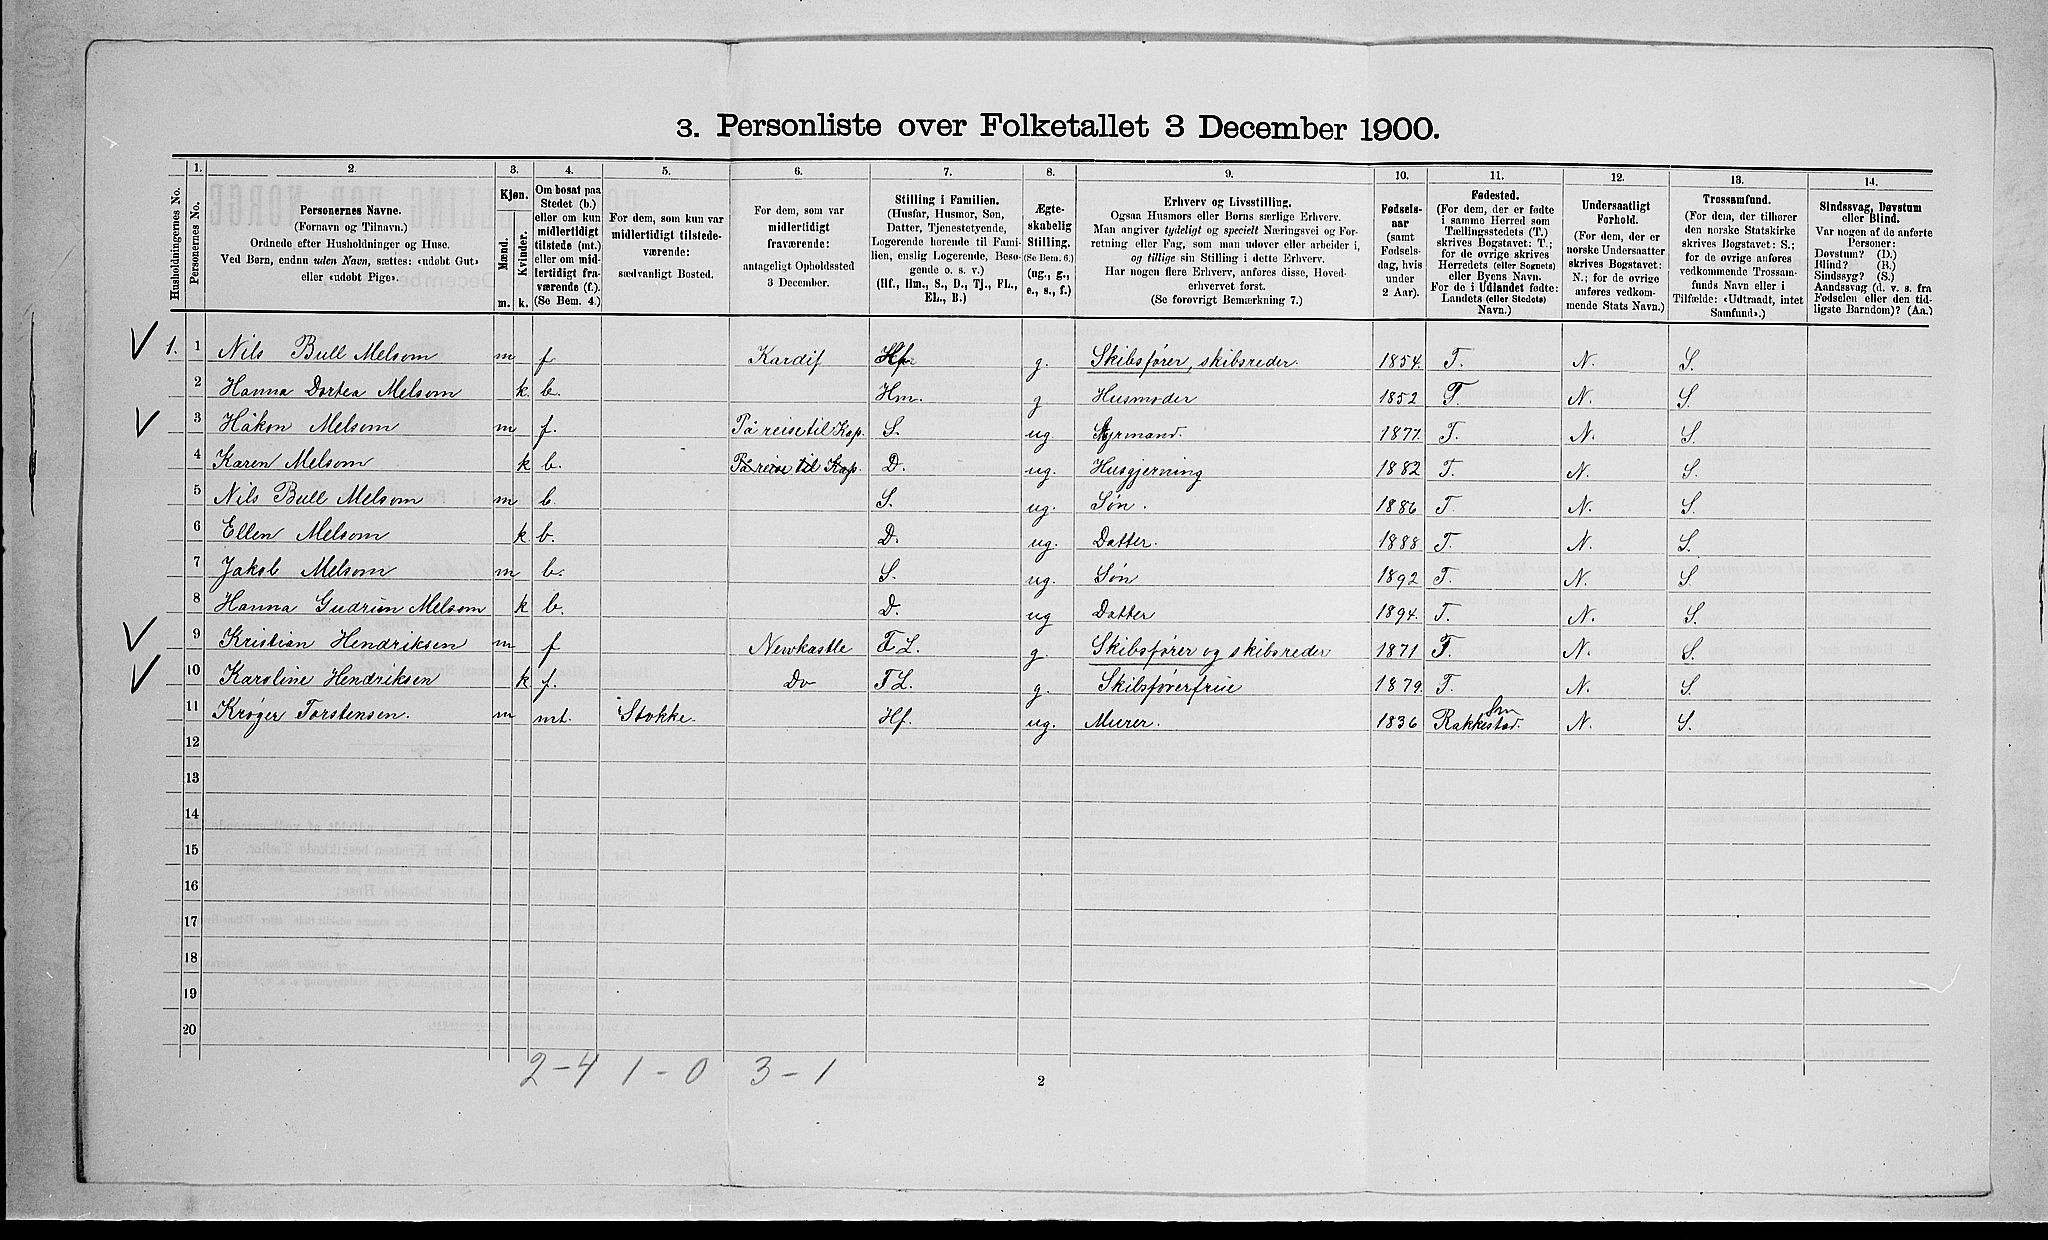 3. Personliste over Folketallet 3 December 1900.
Husholdningernes No.
1.
Personernes No.
2.
Personernes Navne.
(Fornavn og Tilnavn.)
Ordnede efter Husholdninger og Huse.
Ved Børn, endnu uden Navn, sættes: «udøbt Gut»
eller «udøbt Pige».
3.
Kjøn.
Mænd.
Kvinder.
m. k.
4.
Om bosat paa
Stedet (b.)
eller om kun
midlertidigt
tilstede (mt.)
eller om mid-
lertidigt fra-
værende (f.).
(Se Bem. 4.)
5.
For dem, som kun var
midlertidigt tilstede-
værende:
sædvanligt Bosted.
6.
For dem, som var
midlertidigt
fraværende:
antageligt Opholdssted
3 December.
7.
Stilling i Familien.
(Husfar, Husmor, Søn,
Datter, Tjenestetyende,
Logerende hørende til Fami-
lien, enslig Logerende, Besø-
gende o. s. v.)
(Hf., Hm., S., D., Tj., FL.,
EL., B.)
8.
Ægte-
skabelig
Stilling.
(Se Bem. 6.)
(ug., g.,
e., s., f.)
9.
Erhverv og Livsstilling.
Ogsaa Husmors eller Børns særlige Erhverv.
Man angiver tydeligt og specielt Næringsvei og For-
retning eller Fag, som man udøver eller arbeider i,
og tillige sin Stilling i dette Erhverv.
Har nogen flere Erhverv, anføres disse, Hoved-
erhvervet først.
(Se forøvrigt Bemærkning 7.)
10.
Fødsels-
aar
(samt
Fødsels-
dag, hvis
under
2 Aar).
11.
Fødested.
(For dem, der er fødte
i samme Herred som
Tællingsstedets (T.)
skrives Bogstavet: T.;
for de øvrige skrives
Herredets (eller Sognets)
eller Byens Navn.
For de i Udlandet fødte:
Landets (eller Stedets)
Navn.)
12.
Undersaatligt
Forhold.
(For dem, der er
norske Undersaatter
skrives Bogstavet:
N.; for de øvrige
anføres vedkom-
mende Stats Navn.)
13.
Trossamfund.
(For dem, der tilhører
den norske Statskirke
skrives Bogstavet: S.;
for de øvrige anføres
vedkommende Trossam-
funds Navn eller i
Tilfælde: «Udtraadt, intet
Samfund».)
14.
Sindssvag, Døvstum
eller Blind.
Var nogen af de anførte
Personer:
Døvstum? (D.)
Blind? (B.)
Sindssyg? (S.)
Aandssvag (d. v. s. fra
Fødselen eller den tid-
ligste Barndom)? (Aa.)
1. 1 Nils Bull Melsom m f Kardif Hf g. Skibsfører, skibsreder. 1854. T. N. S.
2 Hanna Dortea Melsom k. b. Hm. g Husmoder 1852 T. N. S.
3 Håkon Melsom m f. På reise til Kap. S. ug Styrmand. 1877. T. N. S.
4 Karen Melsom k b. På reise til Kap. D. ug. Husgjerning 1882 T. N. S.
5 Nils Bull Melsom m b. S. ug. Søn. 1886 T. N. S.
6 Ellen Melsom k b. D. ug. Datter. 1888 T. N. S.
7 Jakob Melsom m b. S. ug. Søn 1892 T. N. S.
8 Hanna Gudrun Melsom k b. D. ug Datter 1894. T. N. S.
9 Kristian Hendriksen m f Newkastle F L. g. Skibsfører og skibsreder 1871 T. N. S.
10 Karoline Hendriksen k f. Do F L. g. Skibsførerfrue 1879. T. N. S.
11 Krøger Torstensen. m mt. Stokke. Hf. ug. Murer. 1836 Rakkestad. Sm N. S.
12
13
14
15
16
17
18
19
20
2-4 1-0 3-1
2